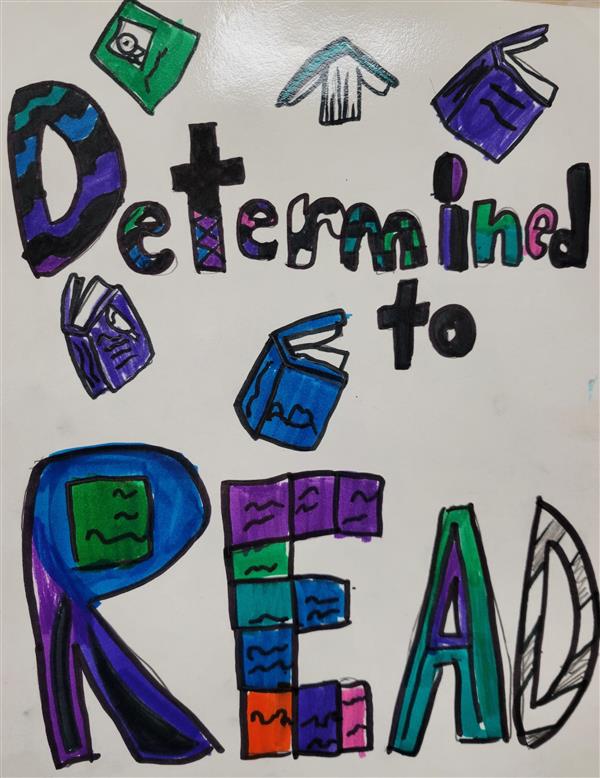 Determined
to
READ